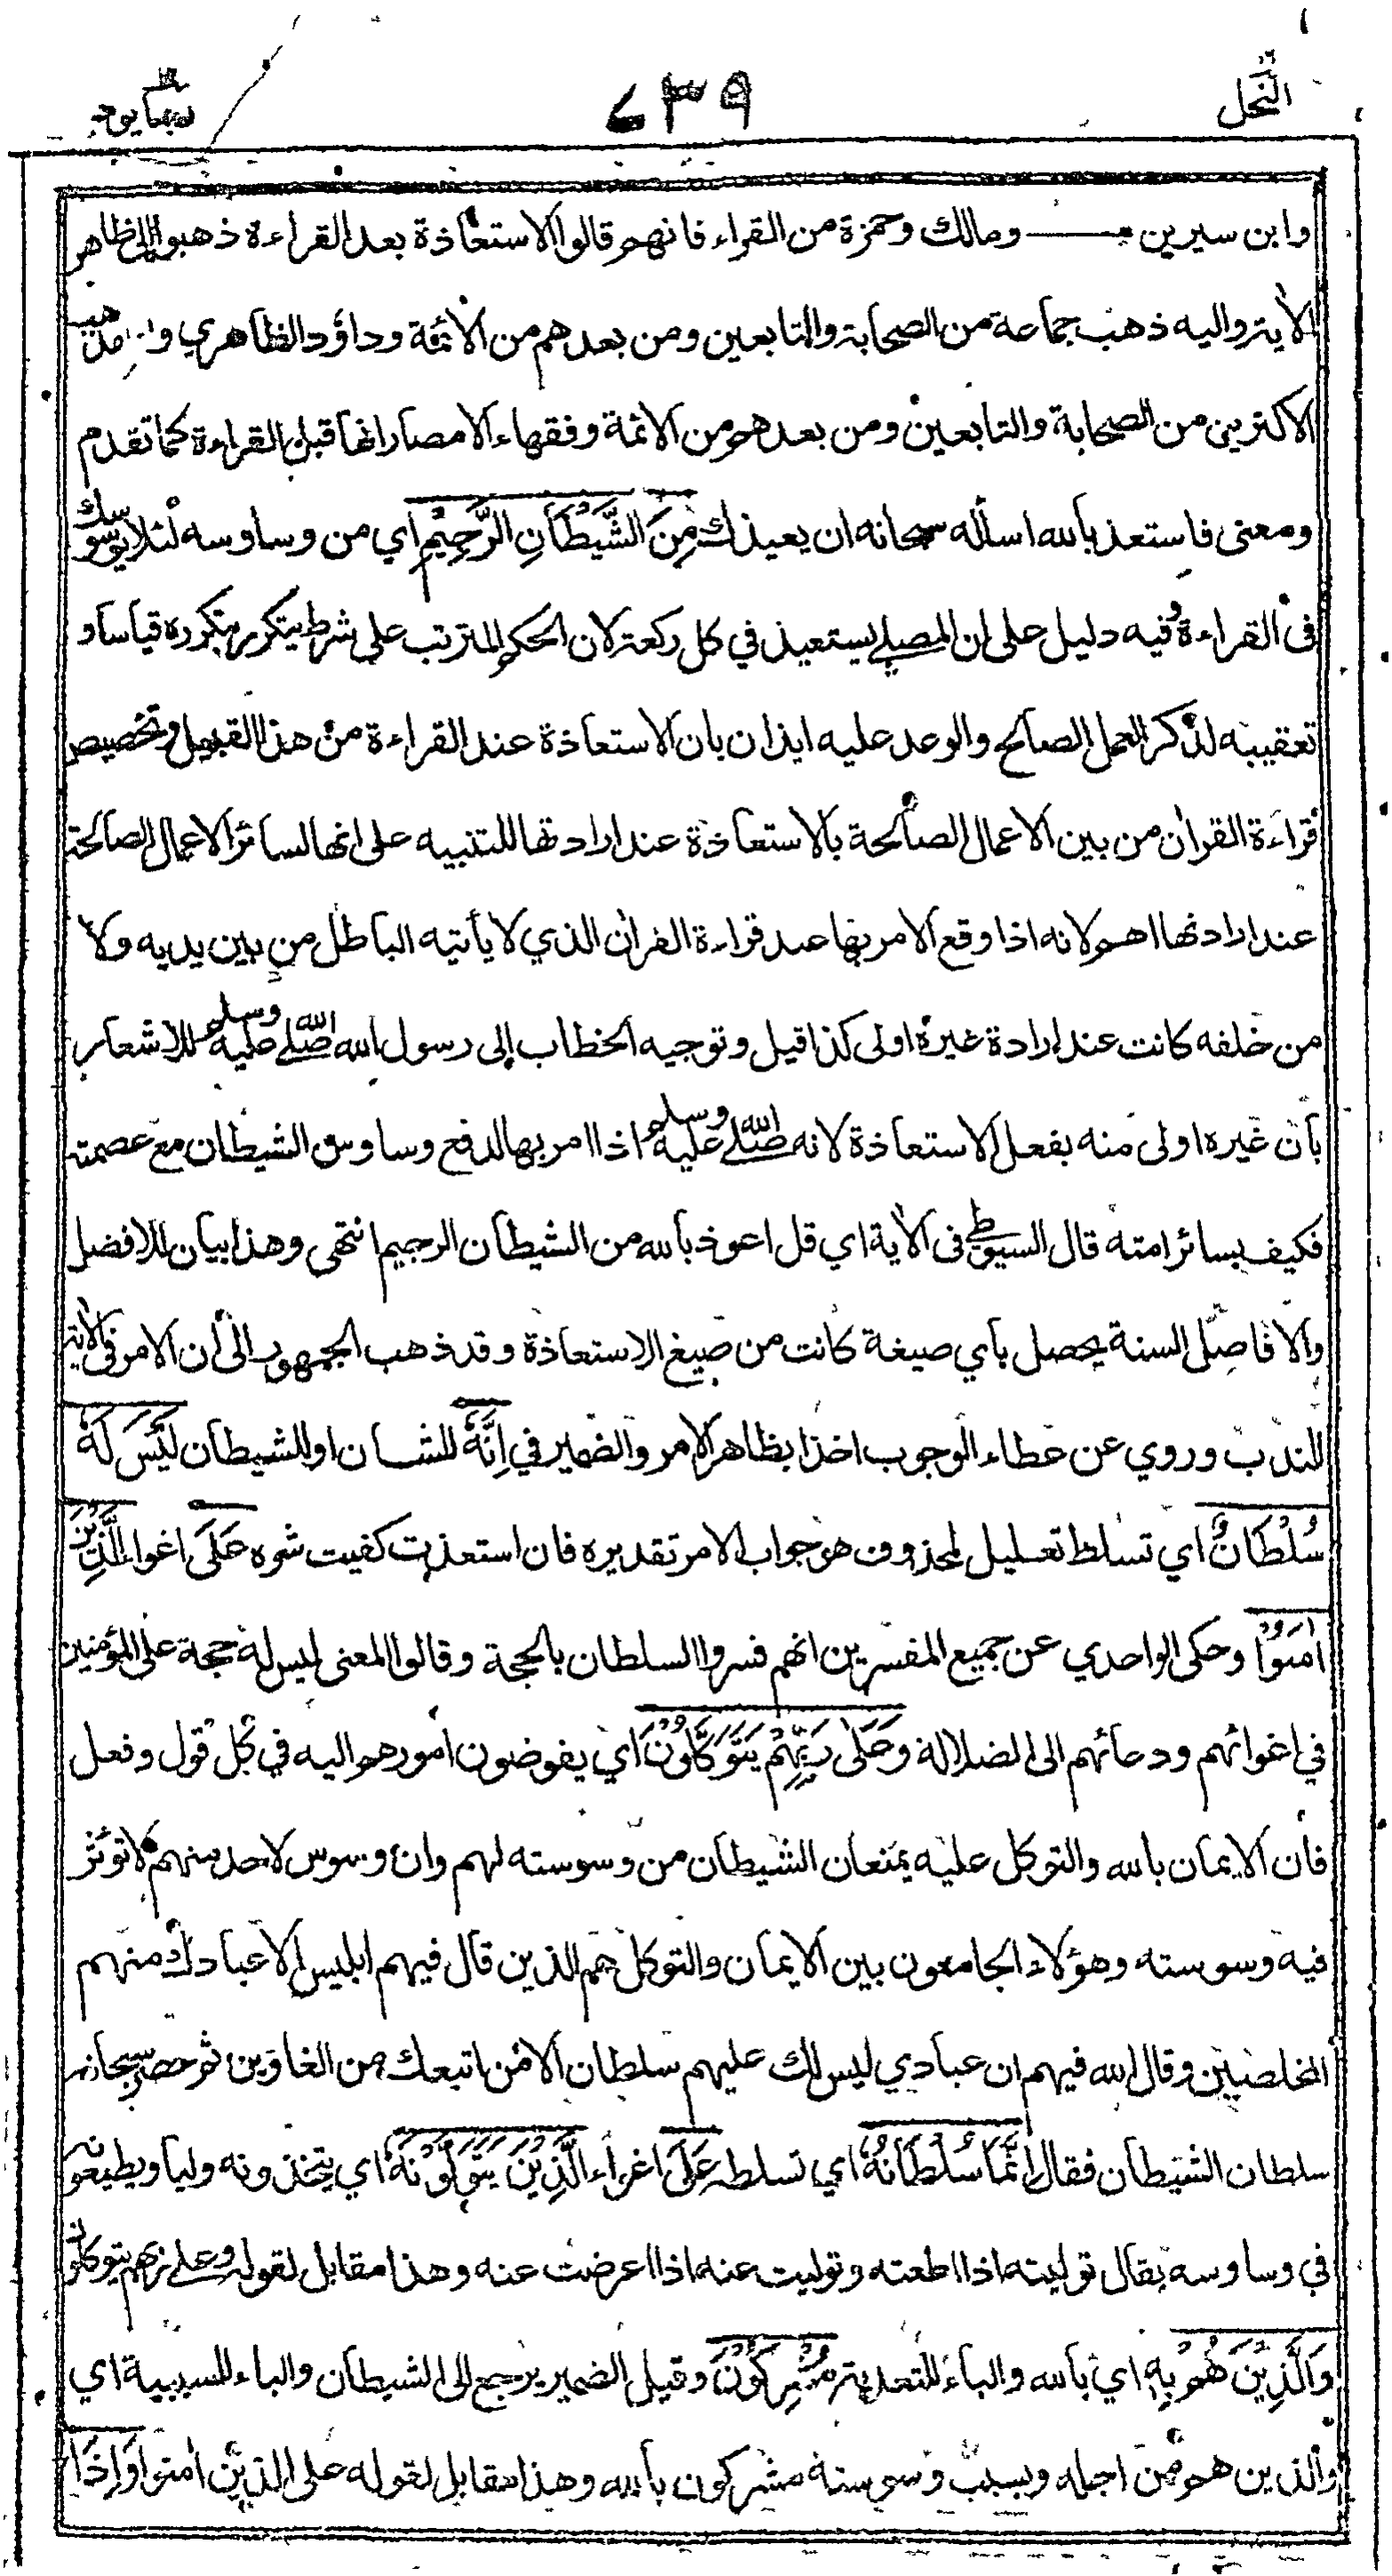 النحل
٧٣٩
ربما يود
وابن سيرين ومالك وحمزة من القراء فانهم قالوا الاستعاذة بعد القراءة ذهبوا الى ظاهر
الاية واليه ذهب جماعة من الصحابة والتابعين ومن بعدهم من الأئمة وداؤد الظاهري و مذهب
الاكثرين من الصحابة والتابعين ومن بعدهم من الائمة وفقهاء الامصار انها قبل القراءة كما تقدم
ومعنى فاستعذ بالله اسأله سبحانه ان يعيذك مِنَ الشَّيْطَانِ الرَّجِيْمِ اي من وساوسه لئلا يوسوسك
فى القراءة وفيه دليل على ان المصلي يستعيذ في كل ركعة لان الحكم المترتب على شرط يتكرر بتكرره قياسا و
تعقيبه لذكر العمل الصالح والوعد عليه ايذان بان الاستعاذة عند القراءة من هذا القبيل وتخصيص
قراءة القران من بين الاعمال الصالحة بالاستعاذة عند ارادتها للتنبيه على انها لسائر الاعمال الصالحة
عند ارادتها اهم لانه اذا وقع الامر بها عند قراءة القران الذي لا يأتيه الباطل من بين يديه ولا
من خلفه كانت عند ارادة غيره اولى كذا قيل وتوجيه الخطاب إلى رسول الله صلى الله عليه وسلم للاشعار
بان غيره اولى منه بفعل الاستعاذة لانه صلى الله عليه وسلم اذا امر بها لدفع وساوس الشيطان مع عصمته
فكيف بسائر امته قال السيوطي فى الاية اي قل اعوذ بالله من الشيطان الرجيم انتهى وهذا بيان للافضل
والا فاصل السنة يحصل بأي صيغة كانت من صيغ الاستعاذة وقد ذهب الجمهور الى أن الامر فى الاية
للندب وروي عن عطاء الوجوب اخذا بظاهر الامر والضمير في اِنَّهٗ للشان او للشيطان لَيْسَ لَهٗ
سُلْطَانٌ اي تسلط تعليل لمحذوف هو جواب الامر تقديره فان استعذت كفيت شره عَلَى اغواء الَّذِيْنَ
اٰمَنُوْا وحكى الواحدي عن جميع المفسرين انهم فسروا السلطان بالحجة وقالوا المعنى ليس له حجة على المؤمنين
في اغوائهم ودعائهم الى الضلالة وَعَلٰى رَبِّهِمْ يَتَوَكَّلُوْنَ اي يفوضون امورهم اليه في كل قول وفعل
فان الايمان بالله والتوكل عليه يمنعان الشيطان من وسوسته لهم وان وسوس لاحد منهم لا تؤثر
فيه وسوسته وهؤلاء الجامعون بين الايمان والتوكل هم الذين قال فيهم ابليس الا عبادك منهم
المخلصين وقال الله فيهم ان عبادي ليس لك عليهم سلطان الا من اتبعك من الغاوين ثم حصر سبحانه
سلطان الشيطان فقال اِنَّمَا سُلْطَانُهٗ اي تسلطه عَلَى اغواء الَّذِيْنَ يَتَوَلَّوْنَهٗ اي يتخذونه وليا ويطيعونه
في وساوسه يقال توليته اذا اطعته وتوليت عنه اذا اعرضت عنه وهذا مقابل لقوله وعلى ربهم يتوكلون
وَالَّذِيْنَ هُمْ بِهٖ اي بالله والباء للتعدية مُشْرِكُوْنَ وقيل الضمير يرجع الى الشيطان والباء للسببية اي
والذين هم من اجله وبسبب وسوسته مشركون بالله وهذا مقابل لقوله على الذين اٰمنوا وَاِذَا